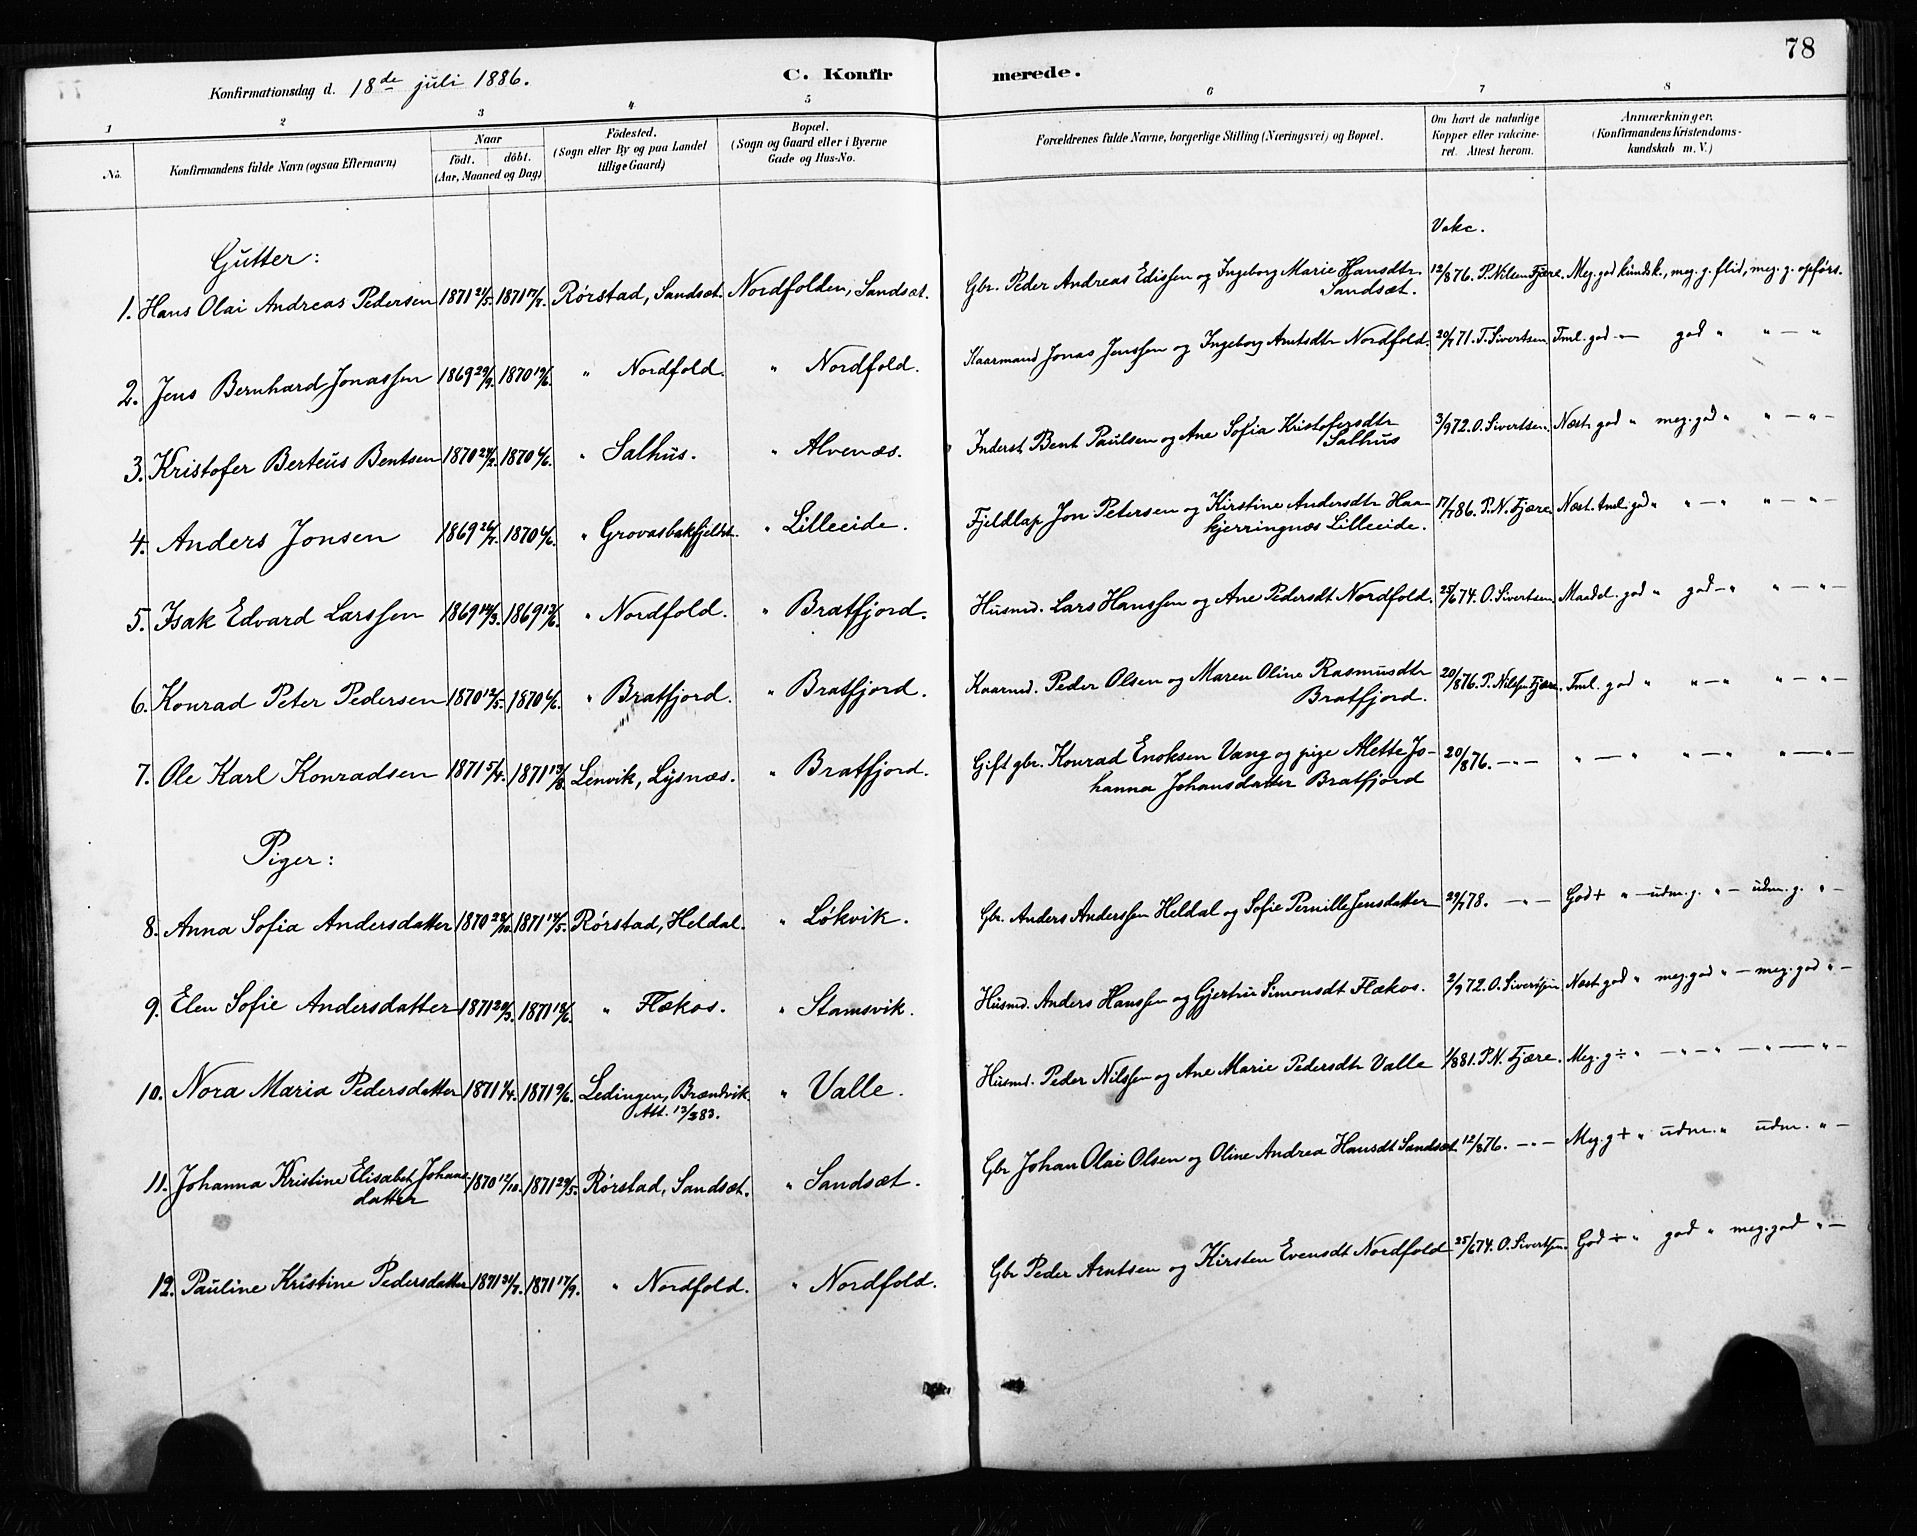 78
Konfirmationsdag d. 18de juli 1886.
C. Konfirmerede.
1 2 3 4 5 6 7 8
No.
Konfirmandens fulde Navn (ogsaa Efternavn)
Naar
födt. döbt.
(Aar, Maaned og Dag)
Födested.
(Sogn eller By og paa Landet
tillige Gaard)
Bopæl.
(Sogn og Gaard eller i Byerne
Gade og Hus-No.
Forældrenes fulde Navne, borgerlige Stilling (Næringsvei) og Bopæl.
Om havt de naturlige
Kopper eller vakcine-
ret. Attest herom.
Anmærkninger.
(Konfirmandens Kristendoms-
kundskab m. V.)
Vakc.
Gutter:
1. Hans Olai Andreas Pedersen 1871 21/5. 1871 17/7. Rørstad, Sandsæt. Nordfolden, Sandsæt. Gbr. Peder Andreas Edissen og Ingeborg Marie Hansdtr. 12/876. P. Nilsen Fjære. Meg. god kundsk., meg. g. flid, meg. g. opførs.
Sandsæt.
2. Jens Bernhard Jonassen 1869 29/9. 1870 19/6. " Nordfold. " Nordfold. Kaarmand Jonas Jenssen og Ingeborg Arntsdtr Nordfold. 20/771. T. Sivertsen. Tml. god — god " " — "
3. Kristofer Berteus Bentsen 1870 24/2. 1870 6/6. " Salhus. " Alvenæs. Inderst Bent Paulsen og Ane Sofia Kristofersdtr 3/972. O. Sivertsen. Næst. god " meg. god " " — " —
Salhus
4. Anders Jonsen 1869 26/7. 1870 6/6. " Grovasbakfjeldet. " Lilleeide. Fjeldlap Jon Petersen og Kirstine Andersdtr Haa- 17/786. P. N. Fjære. Næst. tml. gd " " — " " — " —
kjerringnæs Lilleeide.
5. Isak Edvard Larssen 1869 14/3. 1869 13/6. " Nordfold. " Bratfjord. Husmd. Lars Hanssen og Ane Pedersdt Nordfold. 25/674. O. Sivertsen. Maadel. god " god — " " — " —
6. Konrad Peter Pedersen 1870 12/5. 1870 6/6. " Bratfjord. " Bratfjord. Kaarmd. Peder Olsen og Maren Oline Rasmusdtr 20/876. P. Nilsen Fjære. Tml. god " " — " " — " —
Bratfjord.
7. Ole Karl Konradsen 1871 5/4. 1871 13/8. Lenvik, Lysnæs. " Bratfjord. Gift gbr. Konrad Enoksen Vang og pige Mette Jo- 20/876. — " — " — " " — " " — " —
hanna Johansdatter Bratfjord
Piger:
8. Anna Sofia Andersdatter 1870 28/10. 1871 14/5. Rørstad, Heldal. " Løkvik. Gbr. Anders Anderssen Heldal og Sofie Pernille Jensdatter 29/778. — " — God + " — udm. g. " — udm. g. " —
9. Elen Sofie Andersdatter 1871 20/3. 1871 18/6. " Flækos. " Stamsvik. Husmd. Anders Hanssen og Gjertru Simonsdt Flækos. 2/972. O. Sivertsen Næst. god " meg. god " — meg. god " —
10. Nora Maria Pedersdatter 1871 1/4. 1871 9/6. Ledingen, Brændvik. " Valle. Husmd. Peder Nilssen og Ane Marie Pedersdtr Valle 1/881. P. N. Fjære. Meg. g ÷ " — " — " — " — " —
Att. 13/283.
11. Johanna Kristine Elisabet Johans- 1870 12/10. 1871 29/5. Rørstad, Sandsæt. " Sandsæt. Gbr Johan Olai Olsen og Oline Andrea Hansdt Sandsæt 12/876. — " — Meg. g + " udm. " udm. " —
datter
12. Pauline Kristine Pedersdatter 1871 24/7. 1871 17/9. " Nordfold. " Nordfold. Gbr Peder Arntsen og Kirsten Evensdt Nordfold 25/674. O. Sivertsen. God ÷ " god " meg. god " —